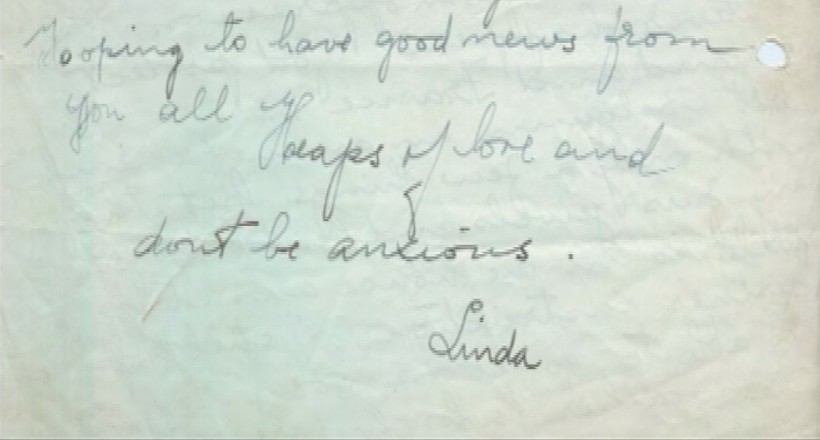 Hoping to have good news from
you all Heaps of love and
dont be anxious.
Linda